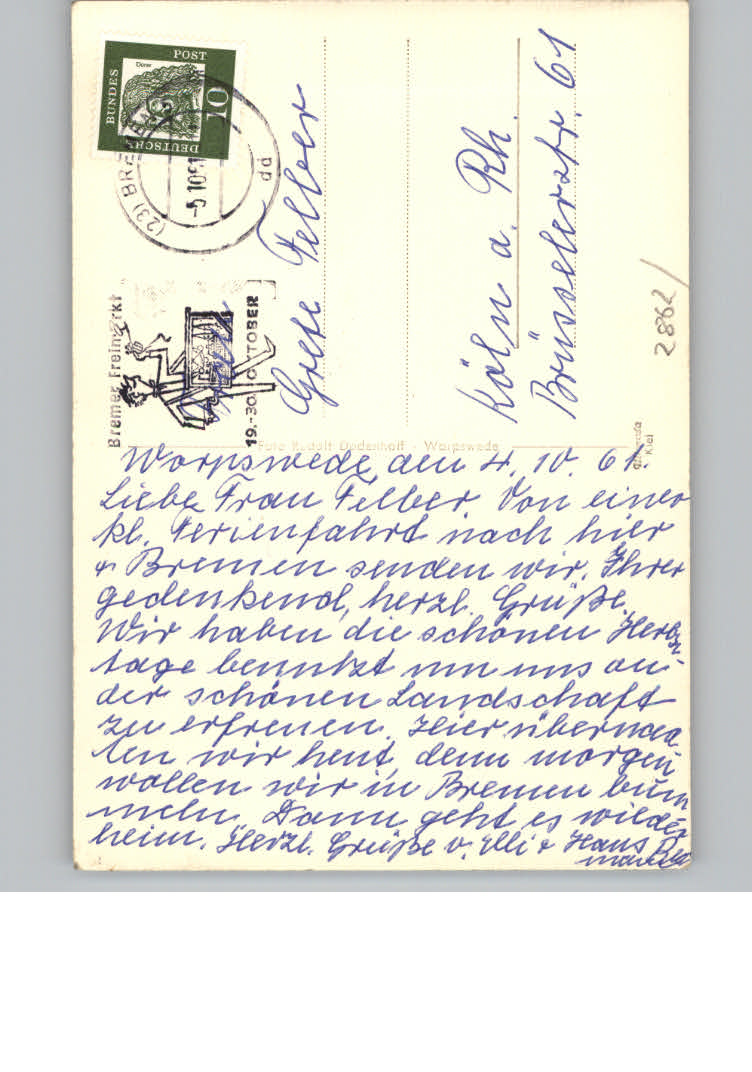 DEUTSCHE
BUNDES
POST
Dürer
10
(23) BREMEN
-5.10.61
dd
Bremer Freimarkt
19.-30. OKTOBER
Frau
Grete Felber
Köln a. Rh.
Brüsselerstr. 61
2862/
Foto Rudolf Dodenhoff - Worpswede
Kiel
Worpswede, den 4. 10. 61.
Liebe Frau Felber. Von einer
kl. Ferienfahrt nach hier
& Bremen senden wir, Ihrer
gedenkend, herzl. Grüße.
Wir haben die schönen Herbst-
tage benutzt um uns an
der schönen Landschaft
zu erfreuen. Hier übernach
ten wir heut, denn morgen
wollen wir in Bremen bum
meln. Dann geht es wieder
heim. Herzl. Grüße v. Elli & Hans